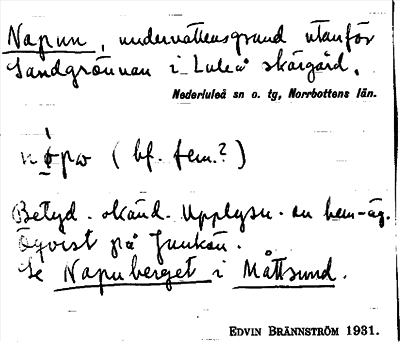 Napun, undervattensgrund utanför
Sandgrönnan i Luleå skärgård.
Nederluleå sn o. tg, Norrbottens län.
(bf. fem.?)
Betyd. okänd. Upplysn. av hem.-äg.
Öqvist på Junkön.
Se Napuberget i Måttsund.
EDVIN BRÄNNSTRÖM 1931.